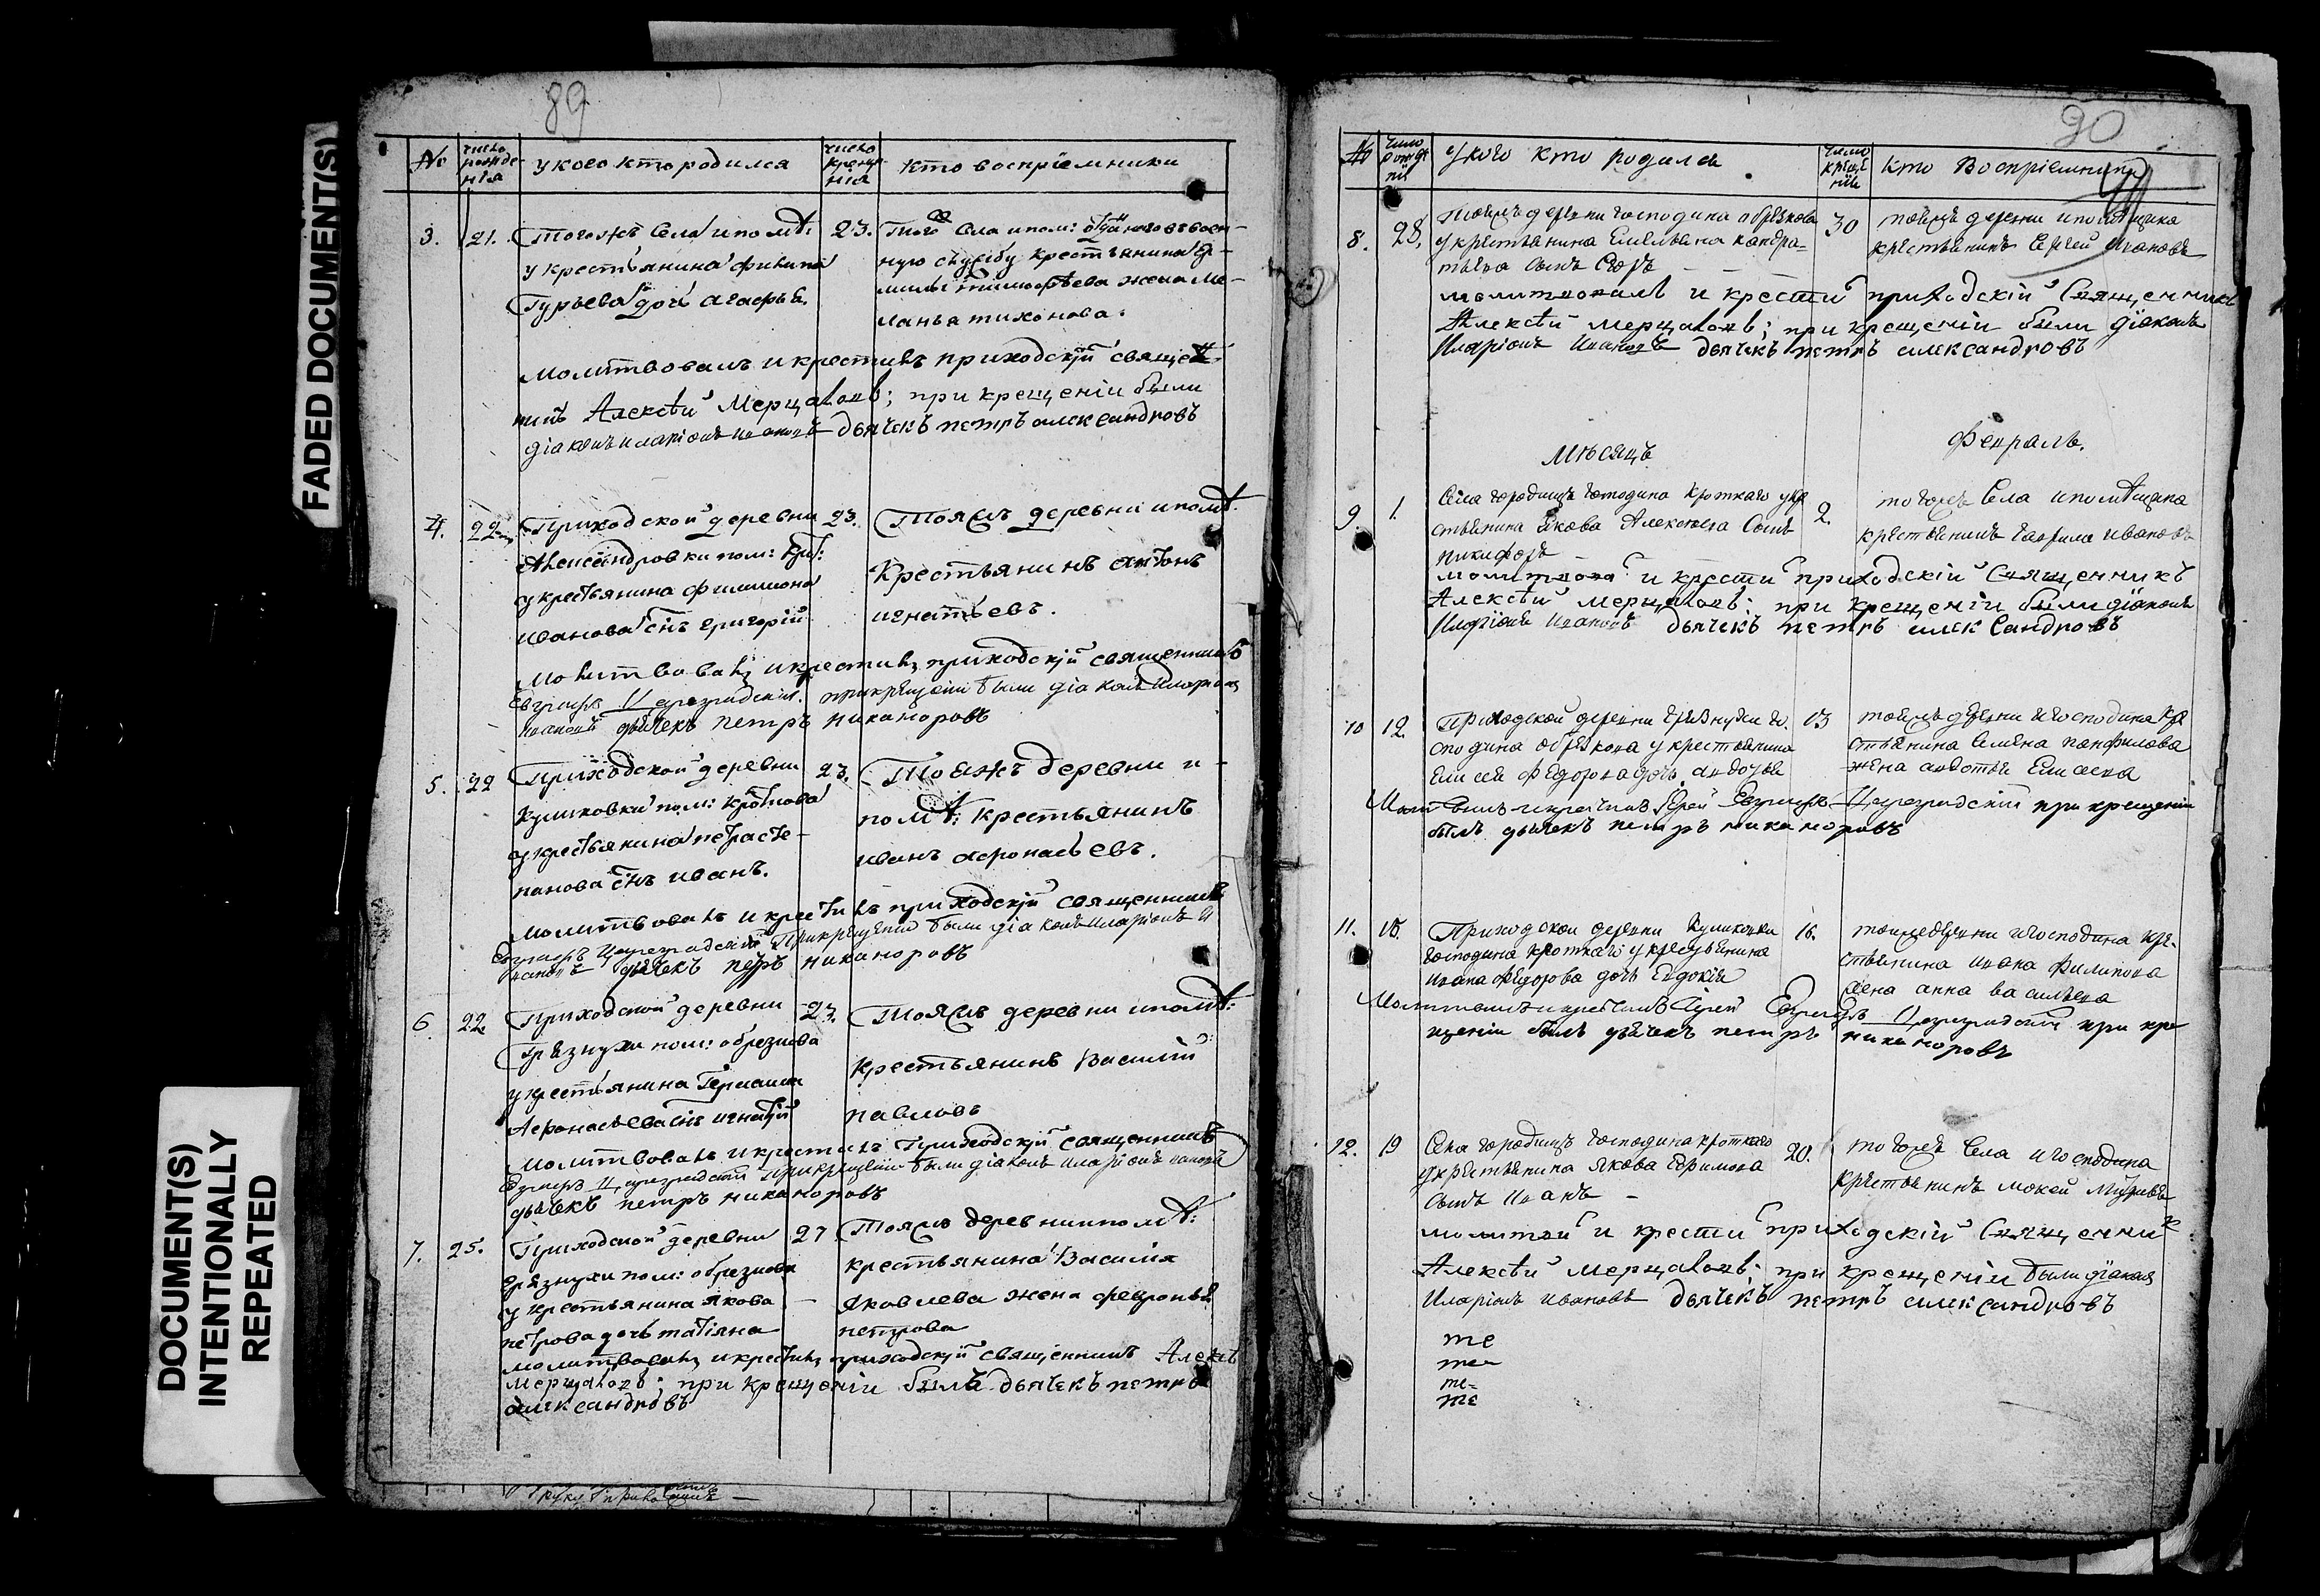 FADED DOCUMENT(S)
DOCUMENT(S)
INTENTIONALLY
REPEATED
89
№
число рожде-
нія
у кого кто родился
число
креще-
нія
кто воспріемники
3. 21. Тогожъ села и помѣ:
у крестьянина филипа
Гурьева дочь агафья.
23. Того села и пом: отданнаго въ воен-
ную службу крестьянина
тимофѣева жена ме-
ланья тихонова.
молитвовалъ и крестилъ приходскій священ-
никъ Алексѣй Мерцаловъ; при крещеніи были
діаконъ иларіонъ ивановъ дьячекъ петръ александровъ
4. 22 Приходской деревни
Александровки пом: Крот:
у крестьянина филимона
иванова снъ григорій
23. Тояжъ деревни и помѣ.
Крестьянинъ антонъ
игнатьевъ.
Молитвовалъ и крестилъ приходскій священникъ
Евграфъ Цареградскій. при крещеніи были діаконъ иларіонъ
ивановъ дьячекъ петръ никаноровъ
5. 22 Приходской деревни
Куликовки пом: кроткова
у крестьянина петра сте-
панова снъ иванъ.
23. Тояжъ деревни и
помѣ: крестьянинъ
иванъ афонасьевъ.
молитвовалъ и крестилъ приходскій священникъ
Евграфъ Цареградскій При крещеніи были діаконъ иларіонъ и
вановъ дьячекъ петръ никаноровъ
6. 22 Приходской деревни
Грязнухи пом: обрезкова
у крестьянина Герасима
Афонасьева снъ игнатій
23. Тояжъ деревни и помѣ:
Крестьянинъ Василій
павловъ
молитвовалъ и крестилъ приходскій священникъ
Евграфъ Цареградскій при крещеніи были діаконъ иларіонъ ивановъ
дьячекъ петръ никаноровъ
7. 25. Приходской деревни
грязнухи пом: обрезкова
у крестьянина якова
петрова дочь татіяна
27 Тояжъ деревни и помѣ:
крестьянина Василія
яковлева жена февронья
петрова
молитвовалъ и крестилъ приходскій священникъ Алексѣй
Мерцаловъ; при крещеніи былъ дьячекъ петръ
александровъ
90
№
число
рожде
нія
у кого кто родился
число
креще
нія
кто воспріемники
8. 28. Тоижъ деревни господина обрѣзкова
у крестьянина Емельяна кандра-
тьева сынъ
30 тоижъ деревни и помѣщика
крестьянинъ Сергей Ивановъ
молитвовалъ и крестилъ приходскій Священникъ
Алексѣй Мерцаловъ; при крещеніи были діаконъ
Иларіонъ Ивановъ дьячекъ петръ александровъ
Мѣсяцъ Февраль.
9. 1. Села городищъ господина Кроткаго у кре
стьянина Якова Алексеева сынъ
никифоръ
2. тогожъ села и помѣщика
крестьянинъ гаврила ивановъ
молитвовалъ и крестилъ приходскій Священникъ
Алексѣй Мерцаловъ; при крещеніи были діаконъ
Иларіонъ Ивановъ дьячекъ петръ александровъ
10 12. Приходской деревни грязнухи го-
сподина обрѣзкова у крестьянина
Елисея Федорова дочь авдотья
13 тоижъ деревни и господина кре
стьянина Семена панфилова
жена авдотья Елисеева
Молитвовалъ и крестилъ Іерей Евграфъ Цареградскій при крещеніи
былъ дьячекъ петръ никаноровъ
11. 15. Приходской деревни Куликовки
господина кроткаго у крестьянина
Ивана Федорова дочь Евдокія
16. тоижъ деревни и господина кре-
стьянина ивана филипова
жена анна васильева
Молитвовалъ и крестилъ Іерей Евграфъ Цареградскій при кре
щеніи былъ дьячекъ петръ никаноровъ
12. 19 Села городищъ господина кроткаго
у крестьянина Якова Ефимова
сынъ Иванъ
20. тогожъ села и господина
крестьянинъ мокей
молитвов и крестилъ приходскій Священникъ
Алексѣй Мерцаловъ; при крещеніи были діаконъ
Иларіонъ Ивановъ дьячекъ петръ александровъ
те
те
те
те